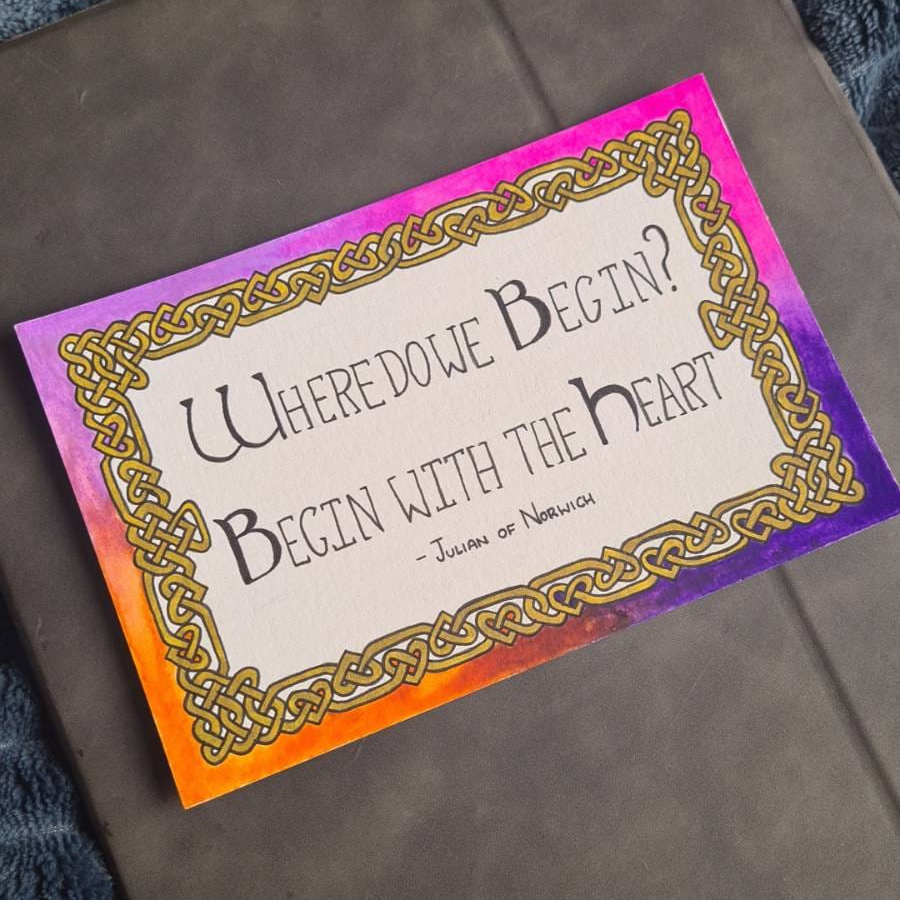 Where do we Begin?
Begin with the heart
- Julian of Norwich